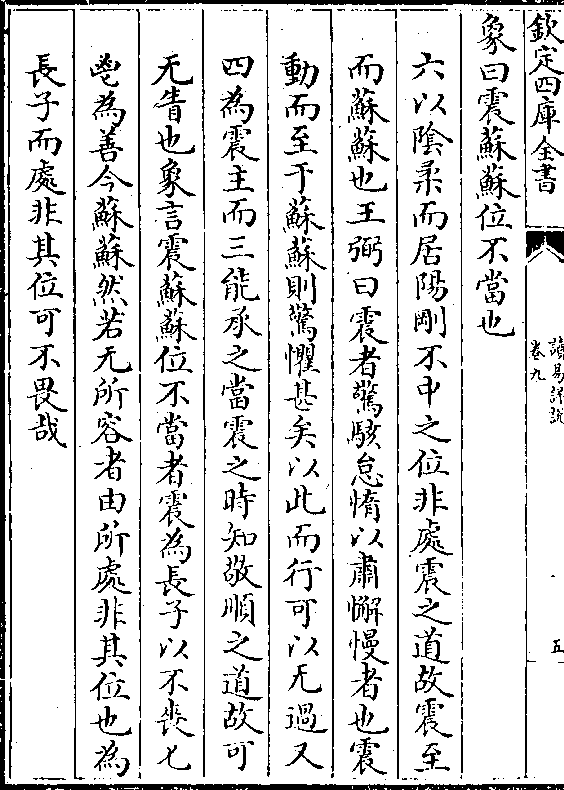 欽定四庫全書
讀易詳說
卷九
五
象曰震蘇蘇位不當也
六以陰柔而居陽剛不中之位非處震之道故震至
而蘇蘇也王弼曰震者驚駭怠惰以肅懈慢者也震
動而至于蘇蘇則驚懼甚矣以此而行可以无過又
四為震主而三能承之當震之時知敬順之道故可
无眚也象言震蘇蘇位不當者震為長子以不喪匕
鬯為善今蘇蘇然若无所容者由所處非其位也為
長子而處非其位可不畏哉